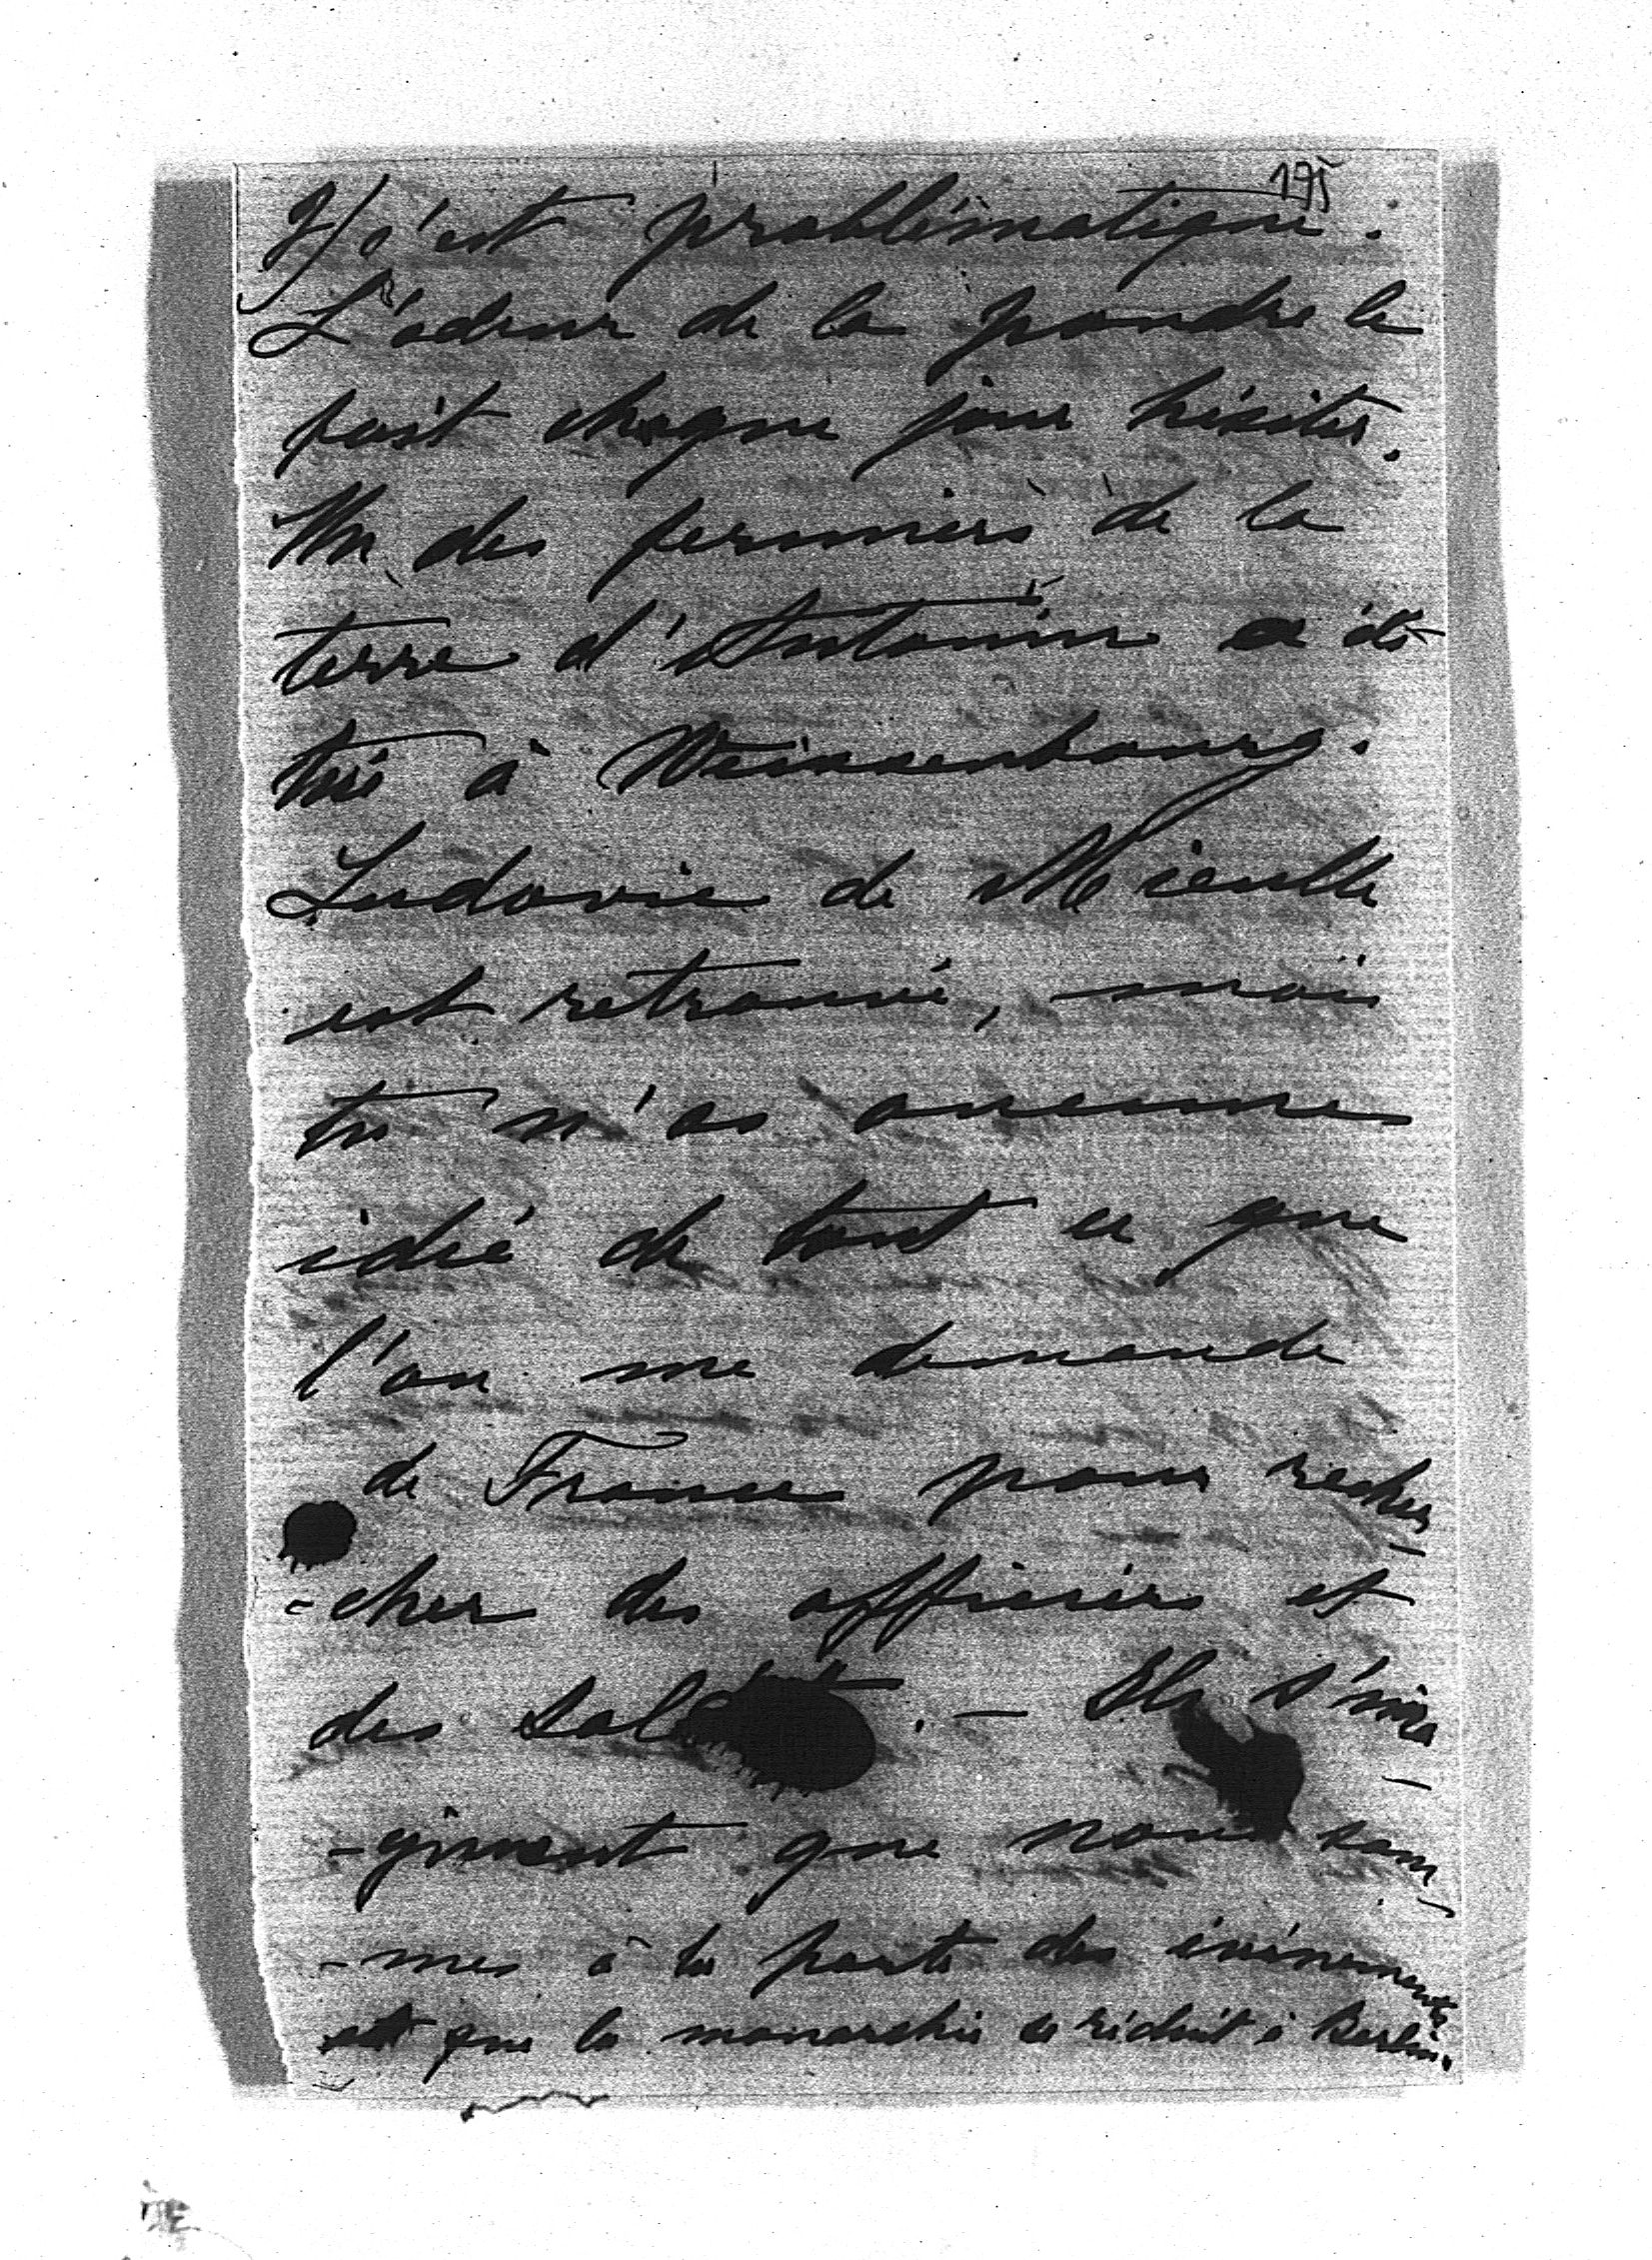 195
2/ c'est problématique.
L'odeur de la poudre le
fait chaque jour hésiter.
Un des fermiers de la
terre d'Antonin a été
tué à Weissenbourg.
Ludovic de Mieulle
est retrouvé, mais
tu n'as aucune
idée de tout ce que
l'on me demande
de France pour recher-
-cher des officiers et
des soldats. — Ils s'ima-
-ginent que nous som-
-mes à la porte des événements
et que la monarchie se réduit à Berlin.